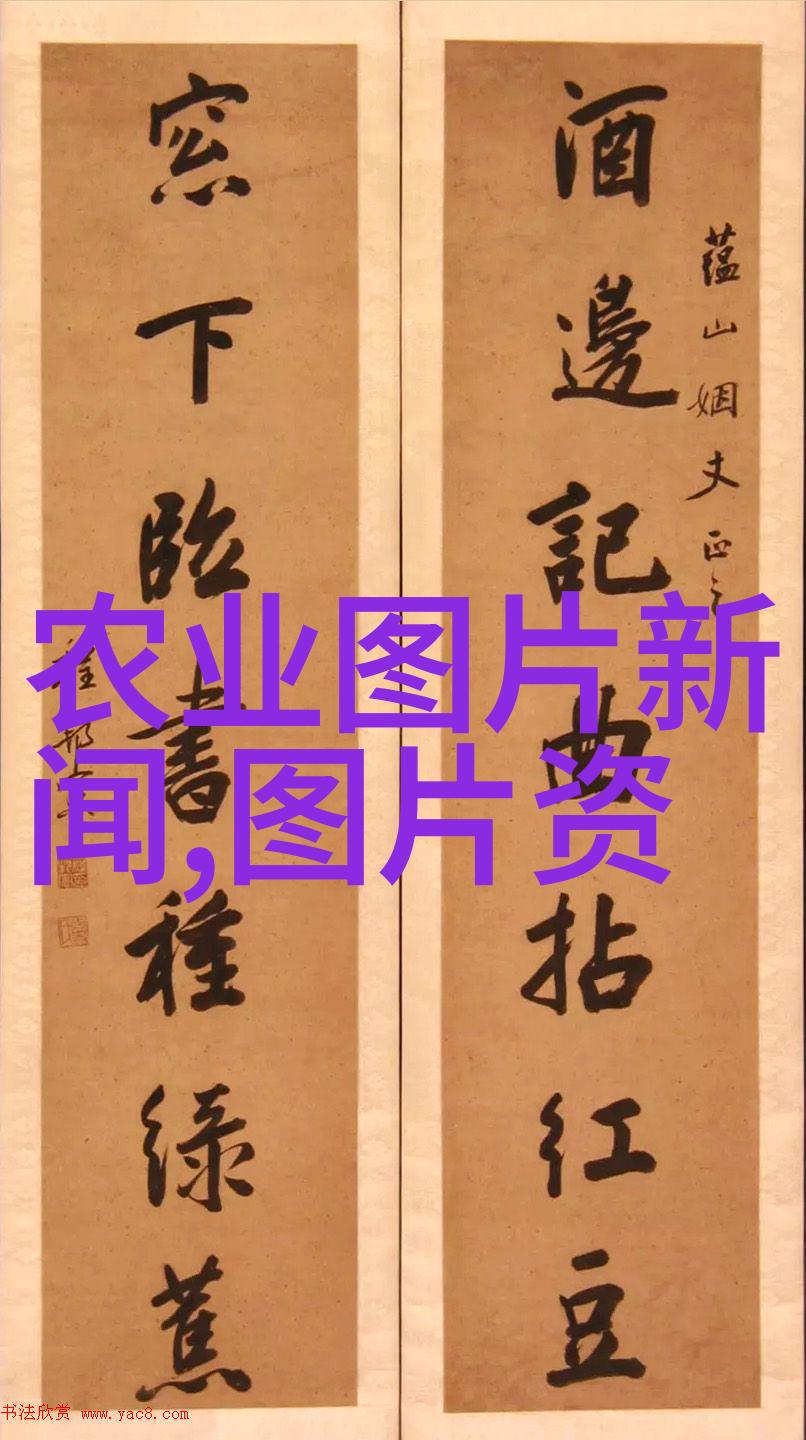 蘊山姻丈正之
酒邊記曲拈紅豆
窓下臨書種緑蕉
农业图片新
闻,图片资
书法欣赏 www.yac8.com